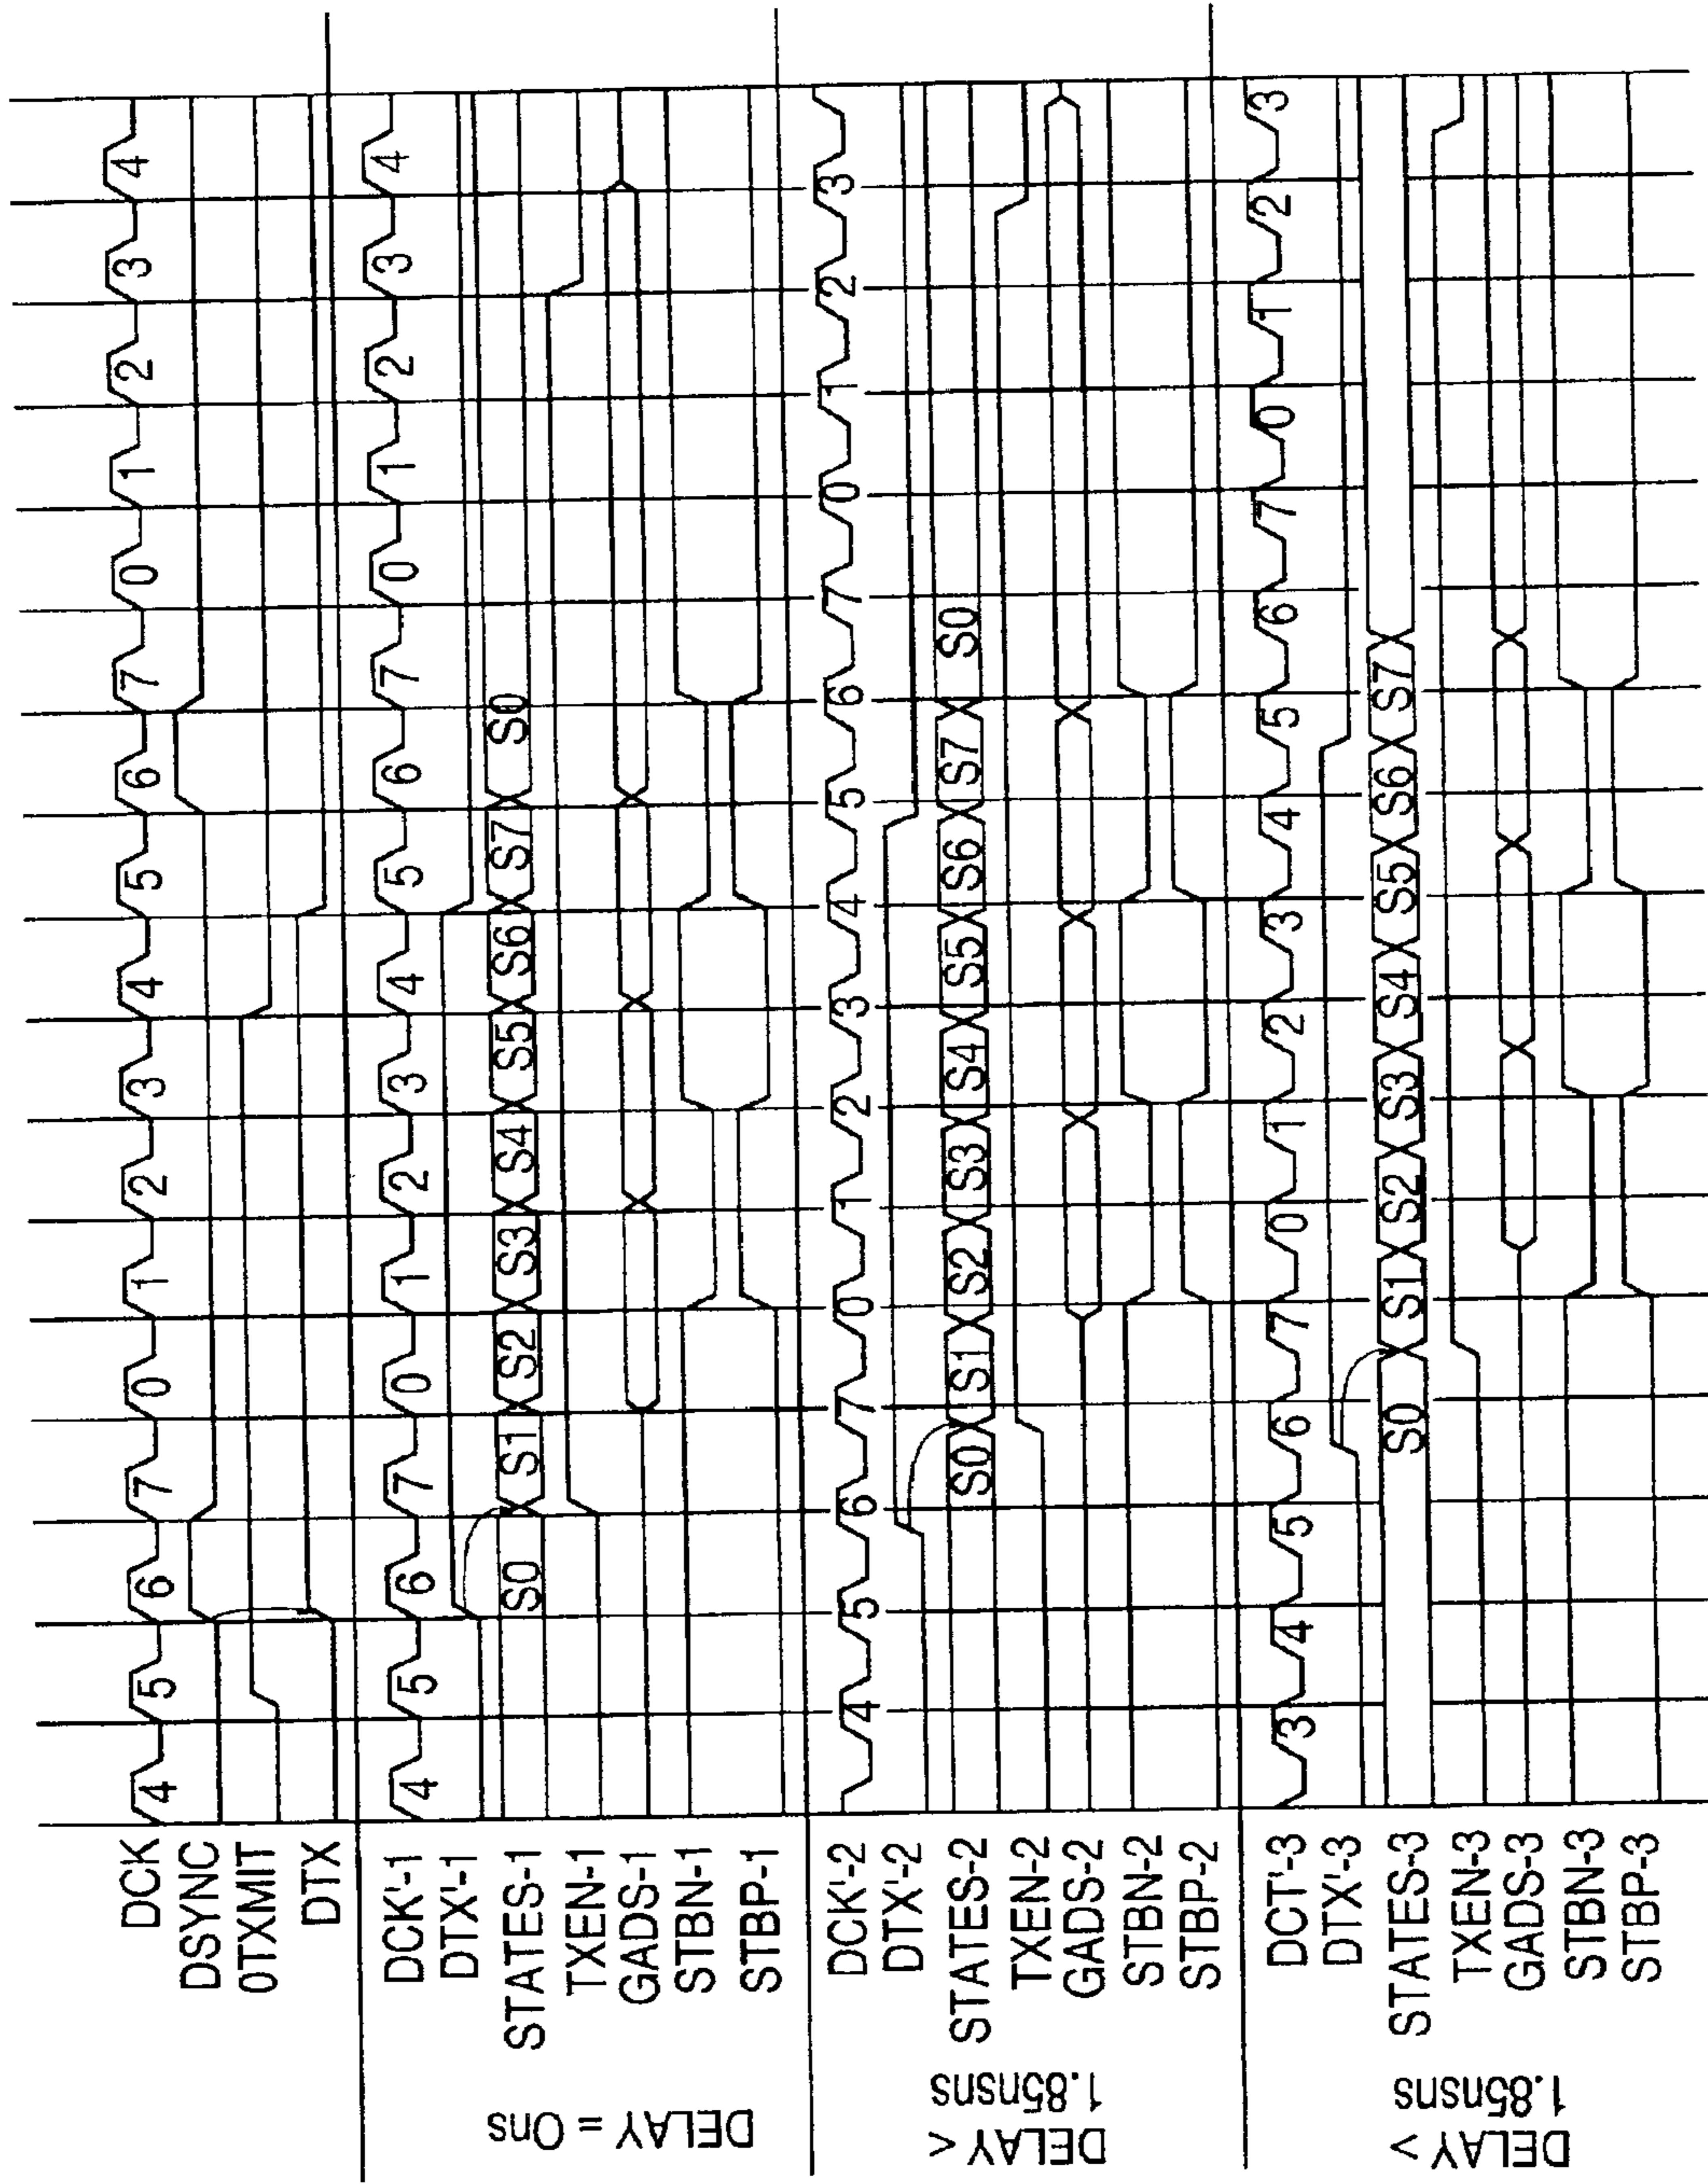 DCK 4 5 6 7 0 1 2 3 4 5 6 7 0 1 2 3 4
DSYNC
0TXMIT
DTX
DELAY = 0ns
DCK'-1 4 5 6 7 0 1 2 3 4 5 6 7 0 1 2 3 4
DTX'-1
STATES-1 S0 S1 S2 S3 S4 S5 S6 S7 S0
TXEN-1
GADS-1
STBN-1
STBP-1
DELAY <
1.85nsns
DCK'-2 4 5 6 7 0 1 2 3 4 5 6 7 0 1 2 3
DTX'-2
STATES-2 S0 S1 S2 S3 S4 S5 S6 S7 S0
TXEN-2
GADS-2
STBN-2
STBP-2
DELAY >
1.85nsns
DCT'-3 3 4 5 6 7 0 1 2 3 4 5 6 7 0 1 2 3
DTX'-3
STATES-3 S0 S1 S2 S3 S4 S5 S6 S7
TXEN-3
GADS-3
STBN-3
STBP-3